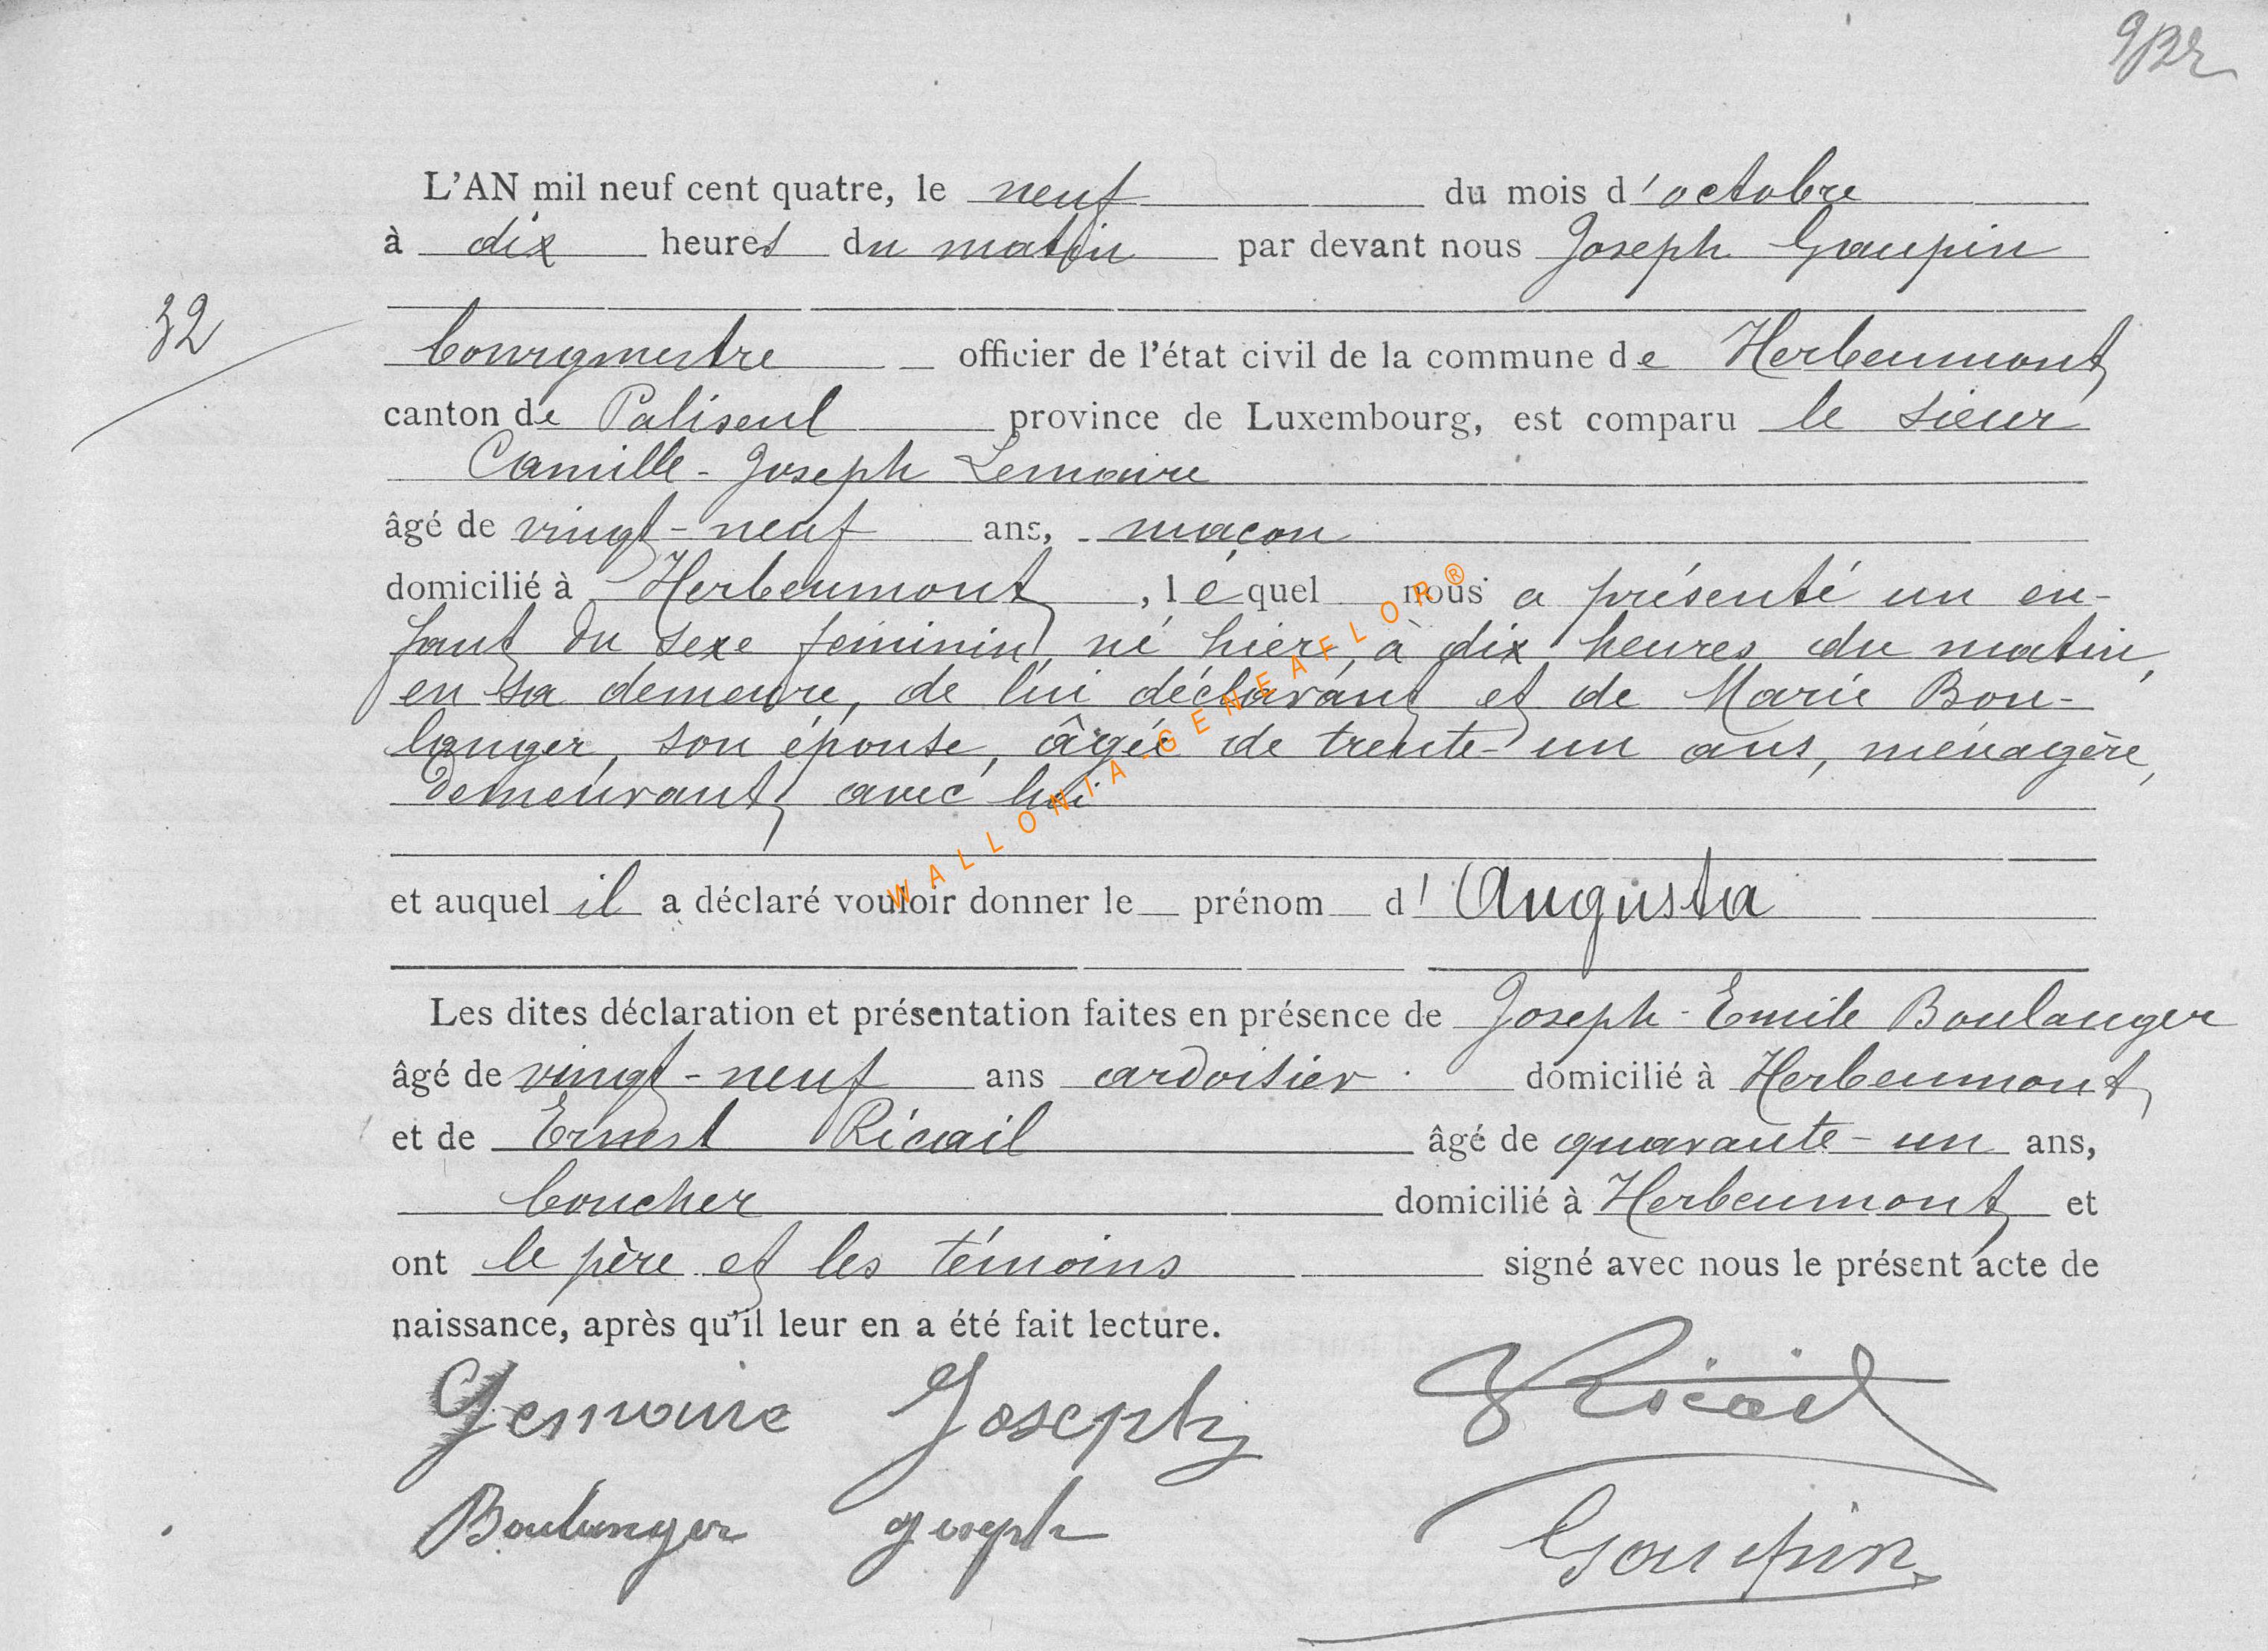 L'AN mil neuf cent quatre, le neuf du mois d'octobre
à dix heures du matin par devant nous Joseph Gaupin
32
bourgmestre officier de l'état civil de la commune de Herbeumont
canton de Paliseul province de Luxembourg, est comparu le sieur
Camille-Joseph Lemaire
âgé de vingt-neuf ans, maçon
domicilié à Herbeumont, lequel nous a présenté un en-
fant du sexe féminin, né hier, à dix heures du matin,
en sa demeure, de lui déclarant et de Marie Bou-
langer, son épouse, âgée de trente-un ans, ménagère,
demeurant avec lui
WALLONIA-GENEAFLOR®
et auquel il a déclaré vouloir donner le prénom d'Augusta
Les dites déclaration et présentation faites en présence de Joseph-Emile Boulanger
âgé de vingt-neuf ans ardoisier domicilié à Herbeumont
et de Ernest Ricail âgé de quarante-un ans,
boucher domicilié à Herbeumont et
ont le père et les témoins signé avec nous le présent acte de
naissance, après qu'il leur en a été fait lecture.
Lemaire Joseph Ricail
Boulanger Joseph Gaupin